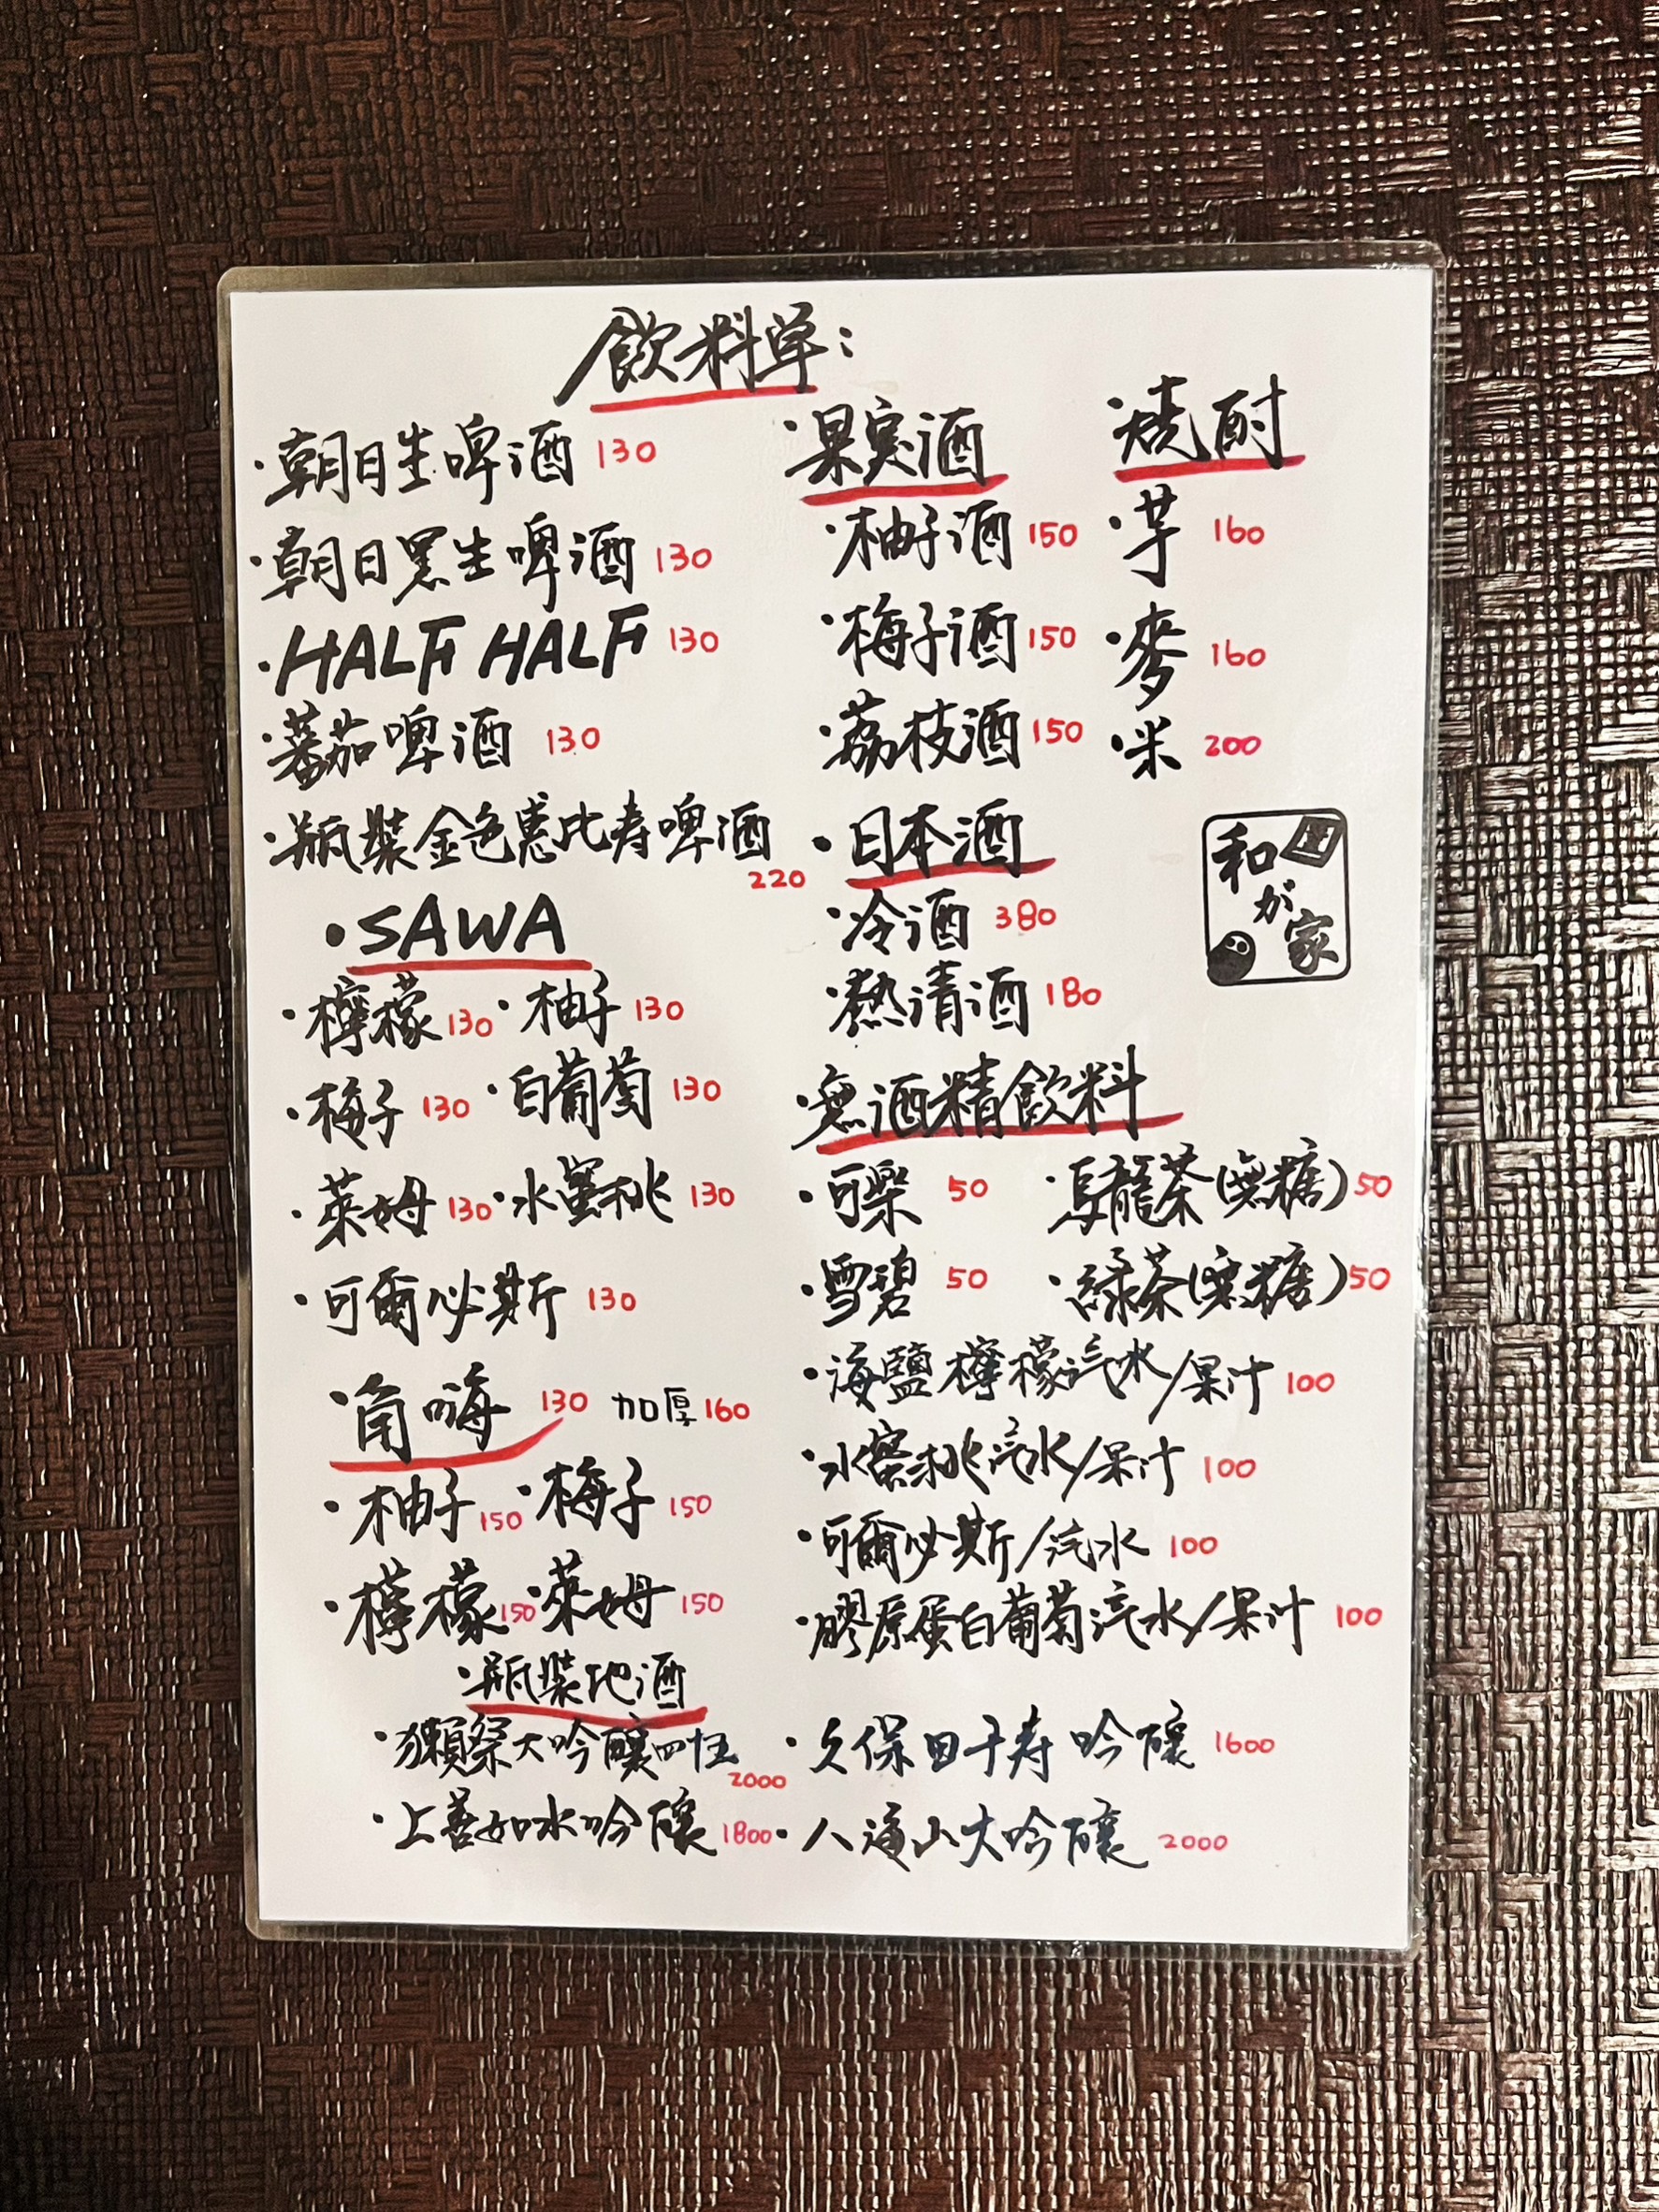 飲料単:
·朝日生啤酒 130
·朝日黑生啤酒 130
·HALF HALF 130
·蕃茄啤酒 130
·瓶裝金色惠比寿啤酒 220
·SAWA
·檸檬 130 ·柚子 130
·梅子 130 ·白葡萄 130
·萊姆 130 ·水蜜桃 130
·可爾必斯 130
·角嗨 130 加厚 160
·柚子 150 ·梅子 150
·檸檬 150 ·萊姆 150
·果実酒
·柚子酒 150
·梅子酒 150
·荔枝酒 150
·日本酒
·冷酒 380
·熱清酒 180
·焼酎
·芋 160
·麥 160
·米 200
和が家
·無酒精飲料
·可樂 50 ·烏龍茶(無糖) 50
·雪碧 50 ·綠茶(無糖) 50
·海鹽檸檬汽水/果汁 100
·水蜜桃汽水/果汁 100
·可爾必斯/汽水 100
·膠原蛋白葡萄汽水/果汁 100
·瓶裝地酒
·獺祭大吟釀四 2000 ·久保田千寿 吟釀 1600
·上善如水吟釀 1800 ·八海山大吟釀 2000